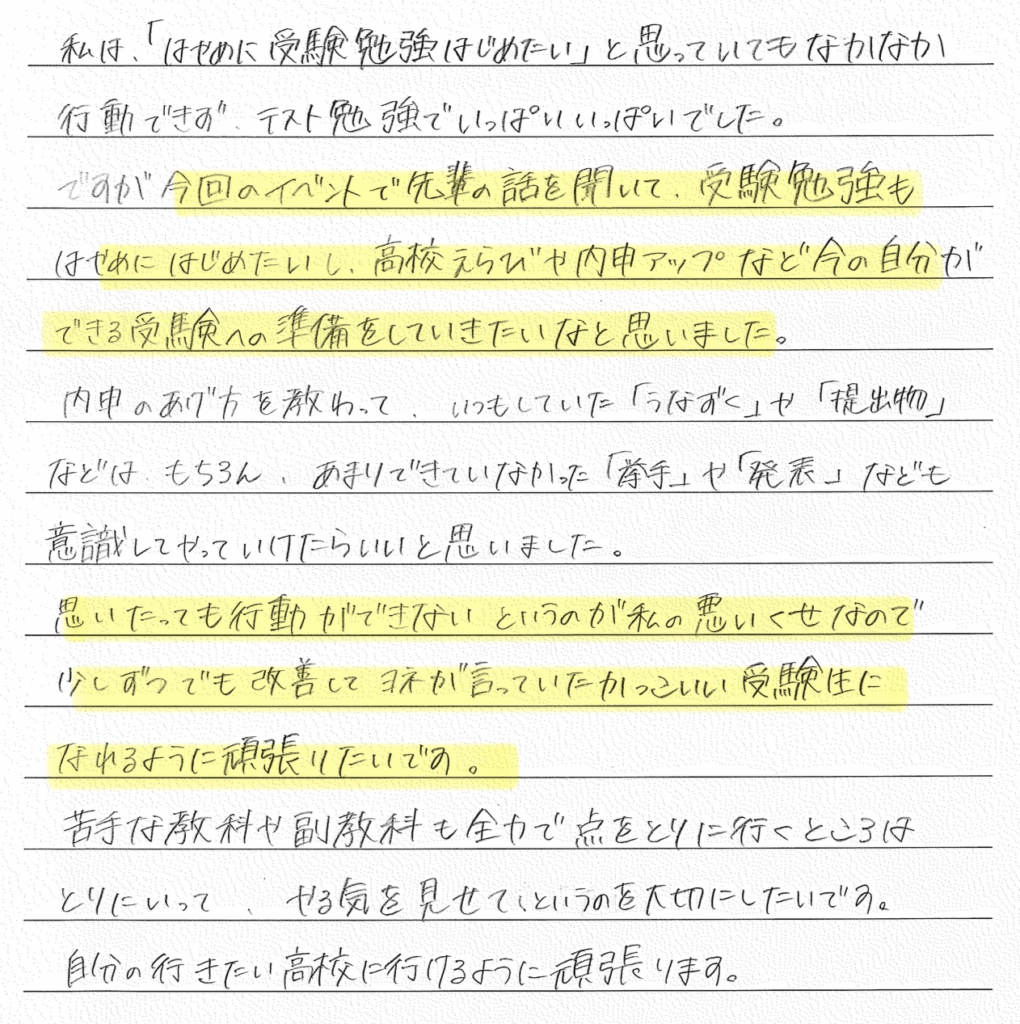 私は、「はやめに受験勉強はじめたい」と思っていてもなかなか
行動できず、テスト勉強でいっぱいいっぱいでした。
ですが今回のイベントで先輩の話を聞いて、受験勉強も
はやめにはじめたいし、高校えらびや内申アップなど今の自分が
できる受験への準備をしていきたいなと思いました。
内申のあげ方を教わって、いつもしていた「うなずく」や「提出物」
などは、もちろん、あまりできていなかった「挙手」や「発表」なども
意識してやっていけたらいいと思いました。
思いたっても行動ができないというのが私の悪いくせなので
少しずつでも改善してヨネが言っていたかっこいい受験生に
なれるように頑張りたいです。
苦手な教科や副教科も全力で点をとりに行くところは
とりにいって、やる気を見せて、というのを大切にしたいです。
自分の行きたい高校に行けるように頑張ります。